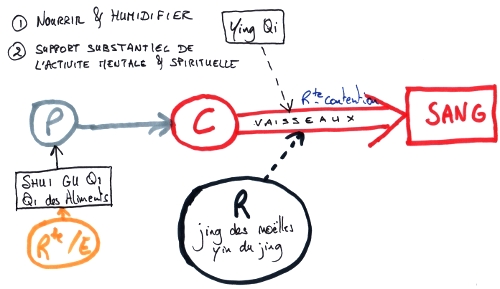 ① NOURRIR & HUMIDIFIER
② SUPPORT SUBSTANTIEL DE
L'ACTIVITE MENTALE & SPIRITUELLE
Ying Qi
Rte contention
P
C
VAISSEAUX
SANG
SHUI GU QI
Qi des Aliments
Rte/E
R
jing des moëlles
yin du jing